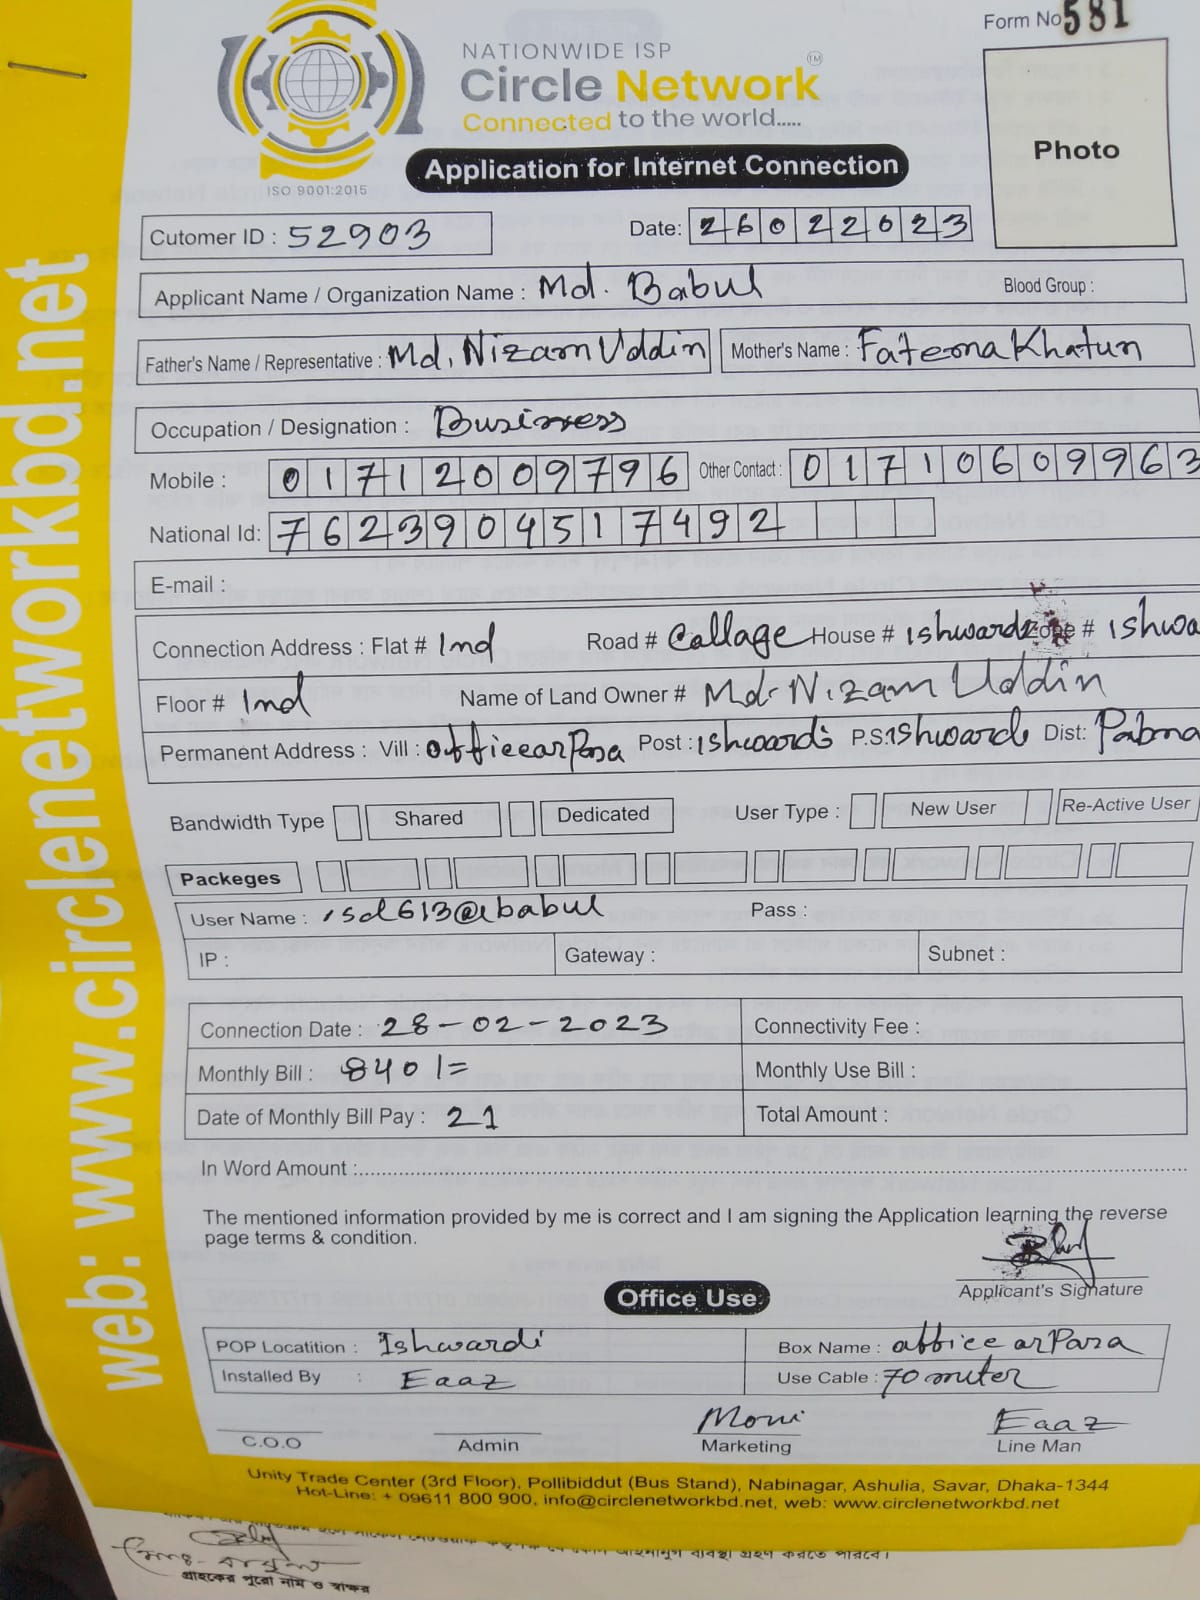 Form No 581
NATIONWIDE ISP
Circle Network TM
Connected to the world.....
ISO 9001:2015
Application for Internet Connection
Photo
Cutomer ID : 52903
Date: 26022023
Applicant Name / Organization Name : Md. Babul Blood Group :
Father's Name / Representative : Md. Nizam Uddin Mother's Name : Fatema Khatun
Occupation / Designation : Business
Mobile : 01712009796 Other Contact : 01710609963
National Id: 7623904517492
E-mail :
Connection Address : Flat # Ind Road # Collage House # ishwardi Zone # ishwa
Floor # Ind Name of Land Owner # Md. Nizam Uddin
Permanent Address : Vill : officearPara Post : ishwardi P.S: ishwardi Dist: Pabna
Bandwidth Type Shared Dedicated User Type : New User Re-Active User
Packeges
User Name : isd613@babul Pass :
IP : Gateway : Subnet :
Connection Date : 28-02-2023 Connectivity Fee :
Monthly Bill : 840/= Monthly Use Bill :
Date of Monthly Bill Pay : 21 Total Amount :
In Word Amount :
The mentioned information provided by me is correct and I am signing the Application learning the reverse
page terms & condition.
Applicant's Signature
Office Use
POP Locatition : Ishwardi Box Name : officearPara
Installed By : Eaaz Use Cable : 70 miter
Moni Eaaz
C.O.O Admin Marketing Line Man
Unity Trade Center (3rd Floor), Pollibiddut (Bus Stand), Nabinagar, Ashulia, Savar, Dhaka-1344
Hot-Line: + 09611 800 900, info@circlenetworkbd.net, web: www.circlenetworkbd.net
web: www.circlenetworkbd.net
ব্যবস্থা গ্রহণ করতে পারবে।
গ্রাহকের পুরো নাম ও স্বাক্ষর